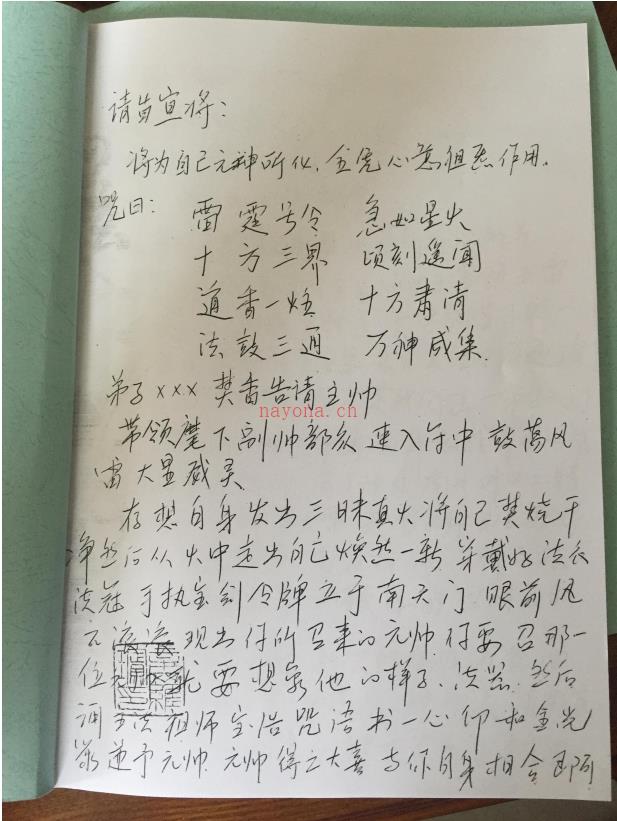 请旨宣将：
将为自己元神所化，全凭心意祖炁作用。
咒曰：雷霆号令 急如星火
十方三界 顷刻遥闻
道香一炷 十方肃清
法鼓三通 万神咸集
弟子xxx 焚香告请主帅
nayona.ch
带领麾下副帅部众 速入符中 鼓荡风
雷大显威灵
存想自身发出三昧真火将自己焚烧干
净然后从火中走出自己焕然一新 穿戴好法衣
法冠 手执宝剑令牌立于南天门 眼前风
云滚滚 现出你所召来的元帅 你要召那一
位 就要想象他的样子、法器 然后
诵 法祖师宝诰咒语书一心 和金光
递予元帅 元帅得之大喜 与你自身相合 即